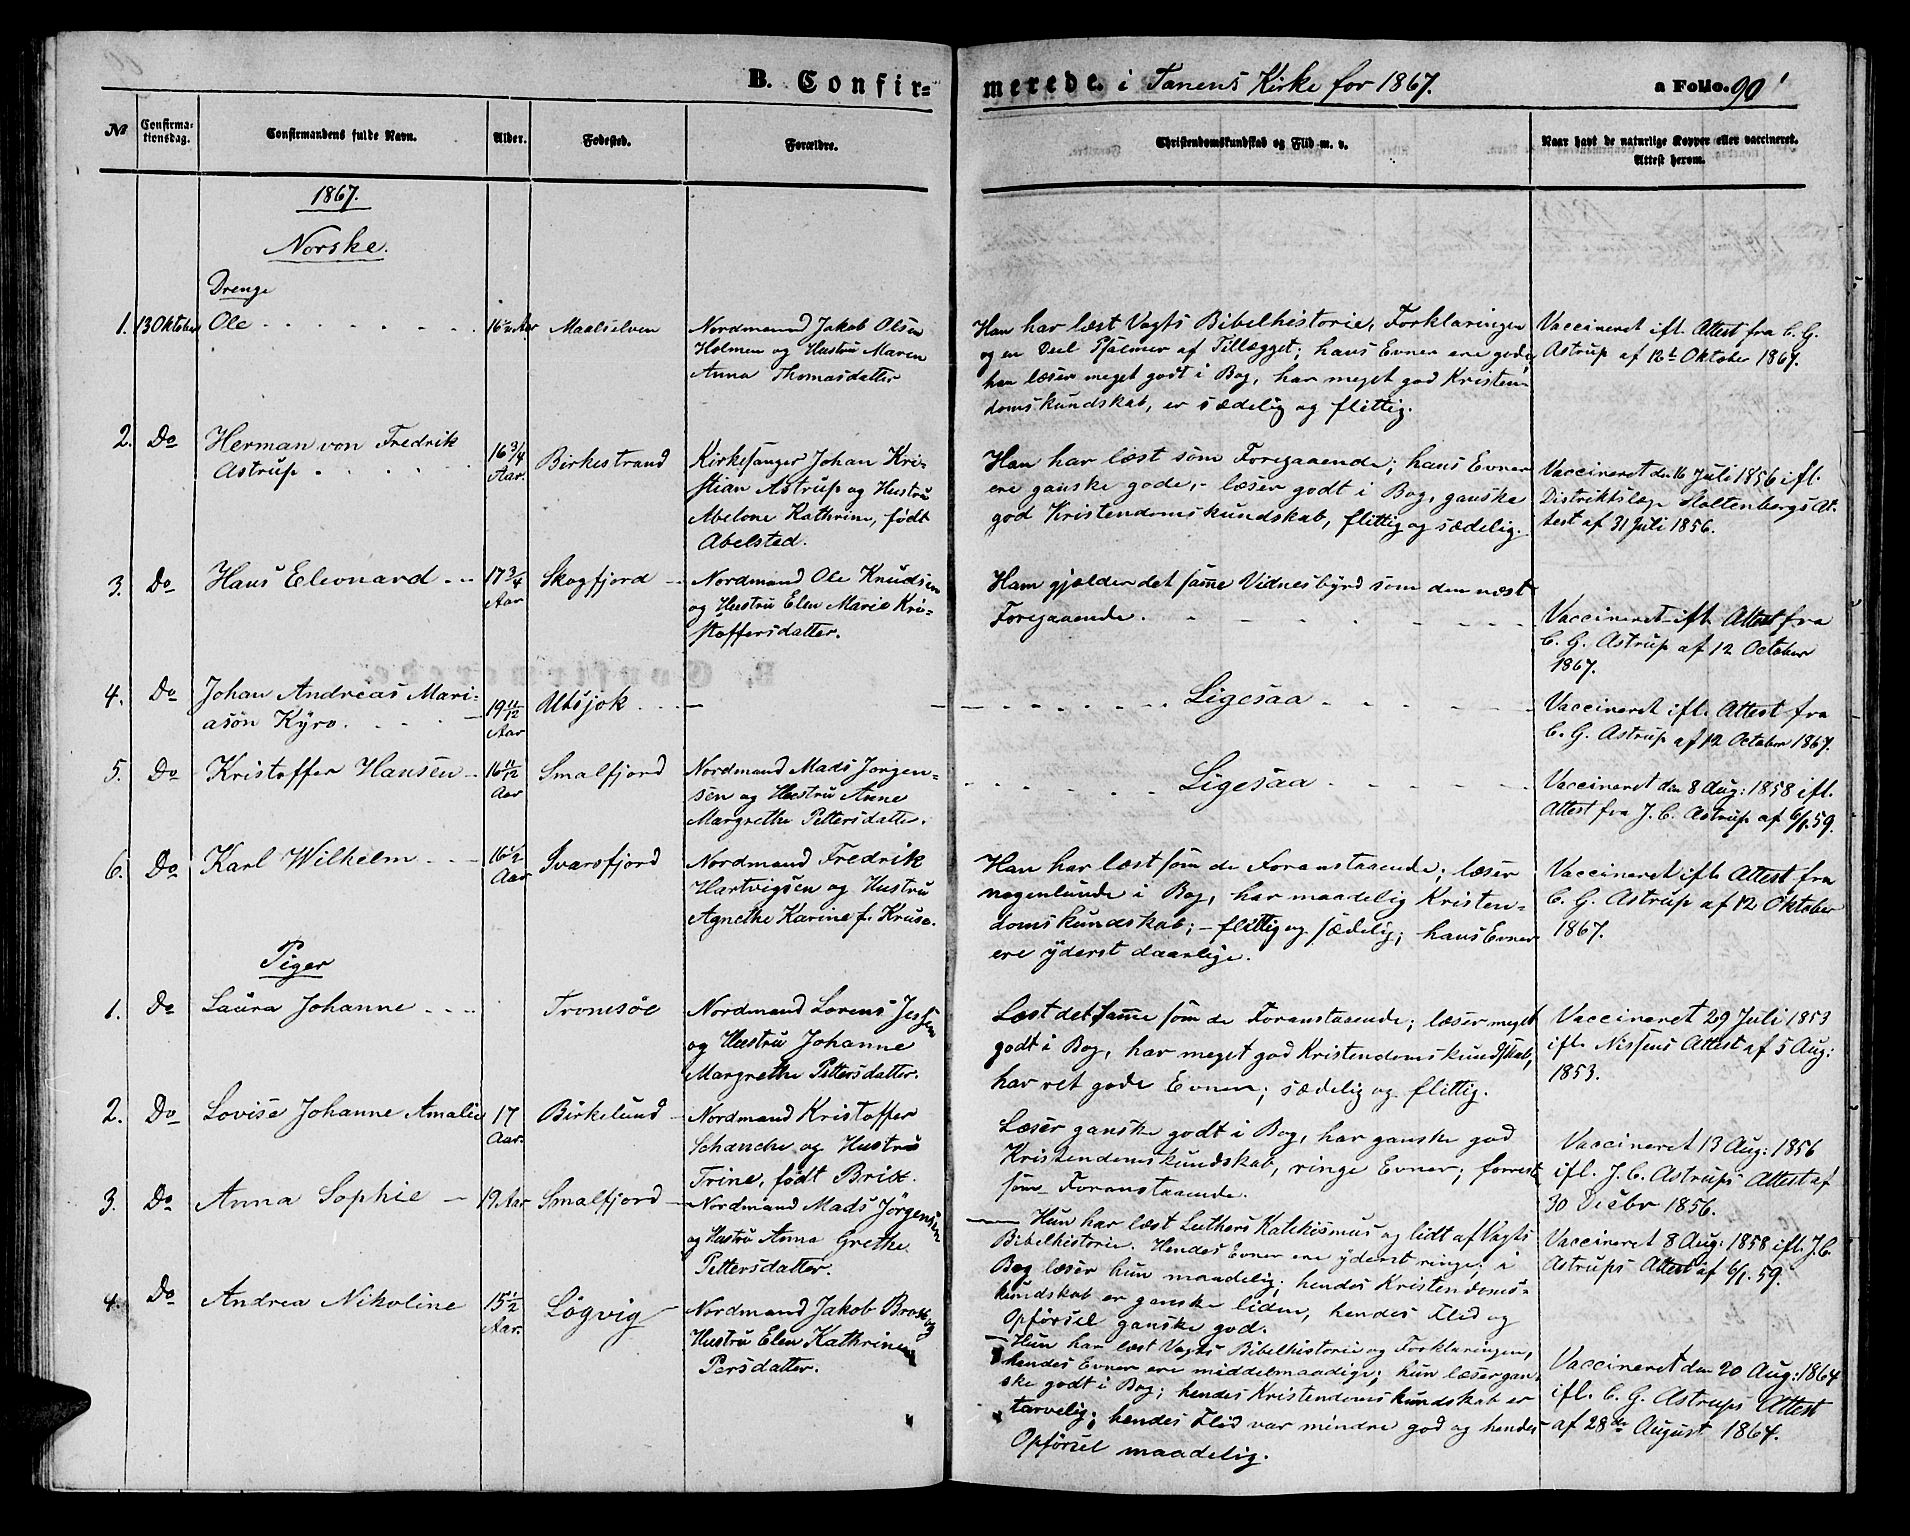 B. Confir=
merede. i Tanens Kirke for 1867.
a Folio. 90
№
Confirma-
tionsdag.
Confirmandens fulde Navn.
Alder.
Fødested.
Forældre.
Christendomskundskab og Flid m. v.
Naar havt de naturlige Kopper eller vaccineret.
Attest herom.
1867.
Norske.
Drenge
1. 13 Oktober Ole . . . . . . . Maalselven
Nordmand Jakob Olsen
Holmen og Hustru Maren
Anna Thomasdatter
Han har læst Vogts Bibelhistorie, Forklaringen
og en Deel Psalmer af Tillægget; hans Evner ere gode
han læser meget godt i Bog, har meget god Kristen-
domskundskab, er sædelig og flittig.
Vaccineret ifl. Attest fra C. G.
Astrup af 12te Oktober 1867.
2. Do Herman von Fredrik
Astrup . . . . .
16 3/4
Aar.
Birkestrand
Kirkesanger Johan Kri-
stian Astrup og Hustru
Abelone Kathrine, født
Abelsted.
Han har læst som Foregaaende; hans Evner
ere ganske gode, - læser godt i Bog, ganske
god Kristendomskundskab, flittig og sædelig.
Vaccineret den 16 Juli 1856 ifl.
Distriktslæge Holtenbergs At-
test af 31 Juli 1856.
3. Do Hans Eleonard . .
17 3/4
Aar
Skogfjord
Nordmand Ole Knudsen
og Hustru Elen Marie Kri-
stoffersdatter.
Ham gjælder det samme Vidnesbyrd som den næst
Foregaaende.
Vaccineret ifl. Attest fra
C. G. Astrup af 12 October
1867.
4. Do Johan Andreas Mari-
asøn Kyrö. . . . .
19 11/12
Aar
Utsjok . . .
Ligesaa
Vaccineret ifl. Attest fra
C. G. Astrup af 12 October 1867.
5. Do Kristoffer Hansen
16 11/12
Aar
Smalfjord
Nordmand Mads Jørgen-
sen og Hustru Anne
Margrethe Pettersdatter.
Ligesaa
Vaccineret den 8 Aug: 1858 ifl.
Attest fra J. C. Astrup af 6/1. 59.
6. Do Karl Wilhelm . . .
16 1/2
Aar
Ivarsfjord
Nordmand Fredrik
Hartvigsen og Hustru
Agnethe Karine f. Kruse.
Han har læst som de Foranstaaende; læser
nogenlunde i Bog, har maadelig Kristen-
domskundskab; - flittig og sædelig; hans Evner
ere yderst daarlige.
Vaccineret ifl. Attest fra
C. G. Astrup af 12 Oktober
1867.
Piger
1. Do Laura Johanne . . . Tromsöe
Nordmand Lorens Jessen
og Hustru Johanne
Margrethe Pettersdatter.
Læst det samme som de Foranstaaende; læser meget
godt i Bog, har meget god Kristendomskundskab,
har ret gode Evner; sædelig og flittig.
Vaccineret 29 Juli 1853
ifl. Nissens Attest af 5 Aug:
1853.
2. Do Lovise Johanne Amalie
17
Aar.
Birkelund
Nordmand Kristoffer
Schanche og Hustru
Trine, født Brix.
Læser ganske godt i Bog, har ganske god
Kristendomskundskab, ringe Evner; forrest
som Foranstaaende.
Vaccineret 13 Aug: 1856
ifl. J. C. Astrups Attest af
30 Decbr 1856.
3. Do Anna Sophie 19 Aar Smalfjord
Nordmand Mads Jörgensen
og Hustru Anna Grethe
Pettersdatter.
Hun har læst Luthers Katekismus og lidt af Vogts
Bibelhistorie. Hendes Evner ere yderst ringe; i
Bog læser hun maadelig; hendes Kristendoms-
kundskab er ganske liden, hendes Flid og
Opførsel ganske god.
Vaccineret 8 Aug: 1858 ifl. J. C.
Astrups Attest af 6/1. 59.
4. Do Andrea Nikoline
15 1/2
Aar.
Lögvig
Nordmand Jakob Brox og
Hustru Elen Kathrine
Persdatter.
Hun har læst Vogts Bibelhistorie og Forklaringen,
hendes Evner ere middelmaadige; hun læser gan-
ske godt i Bog; hendes Kristendomskundskab er
tarvelig; hendes Flid var mindre god og hendes
Opførsel maadelig.
Vaccineret den 20 Aug: 1864
ifl. C. G. Astrups Attest
af 28de August 1864.